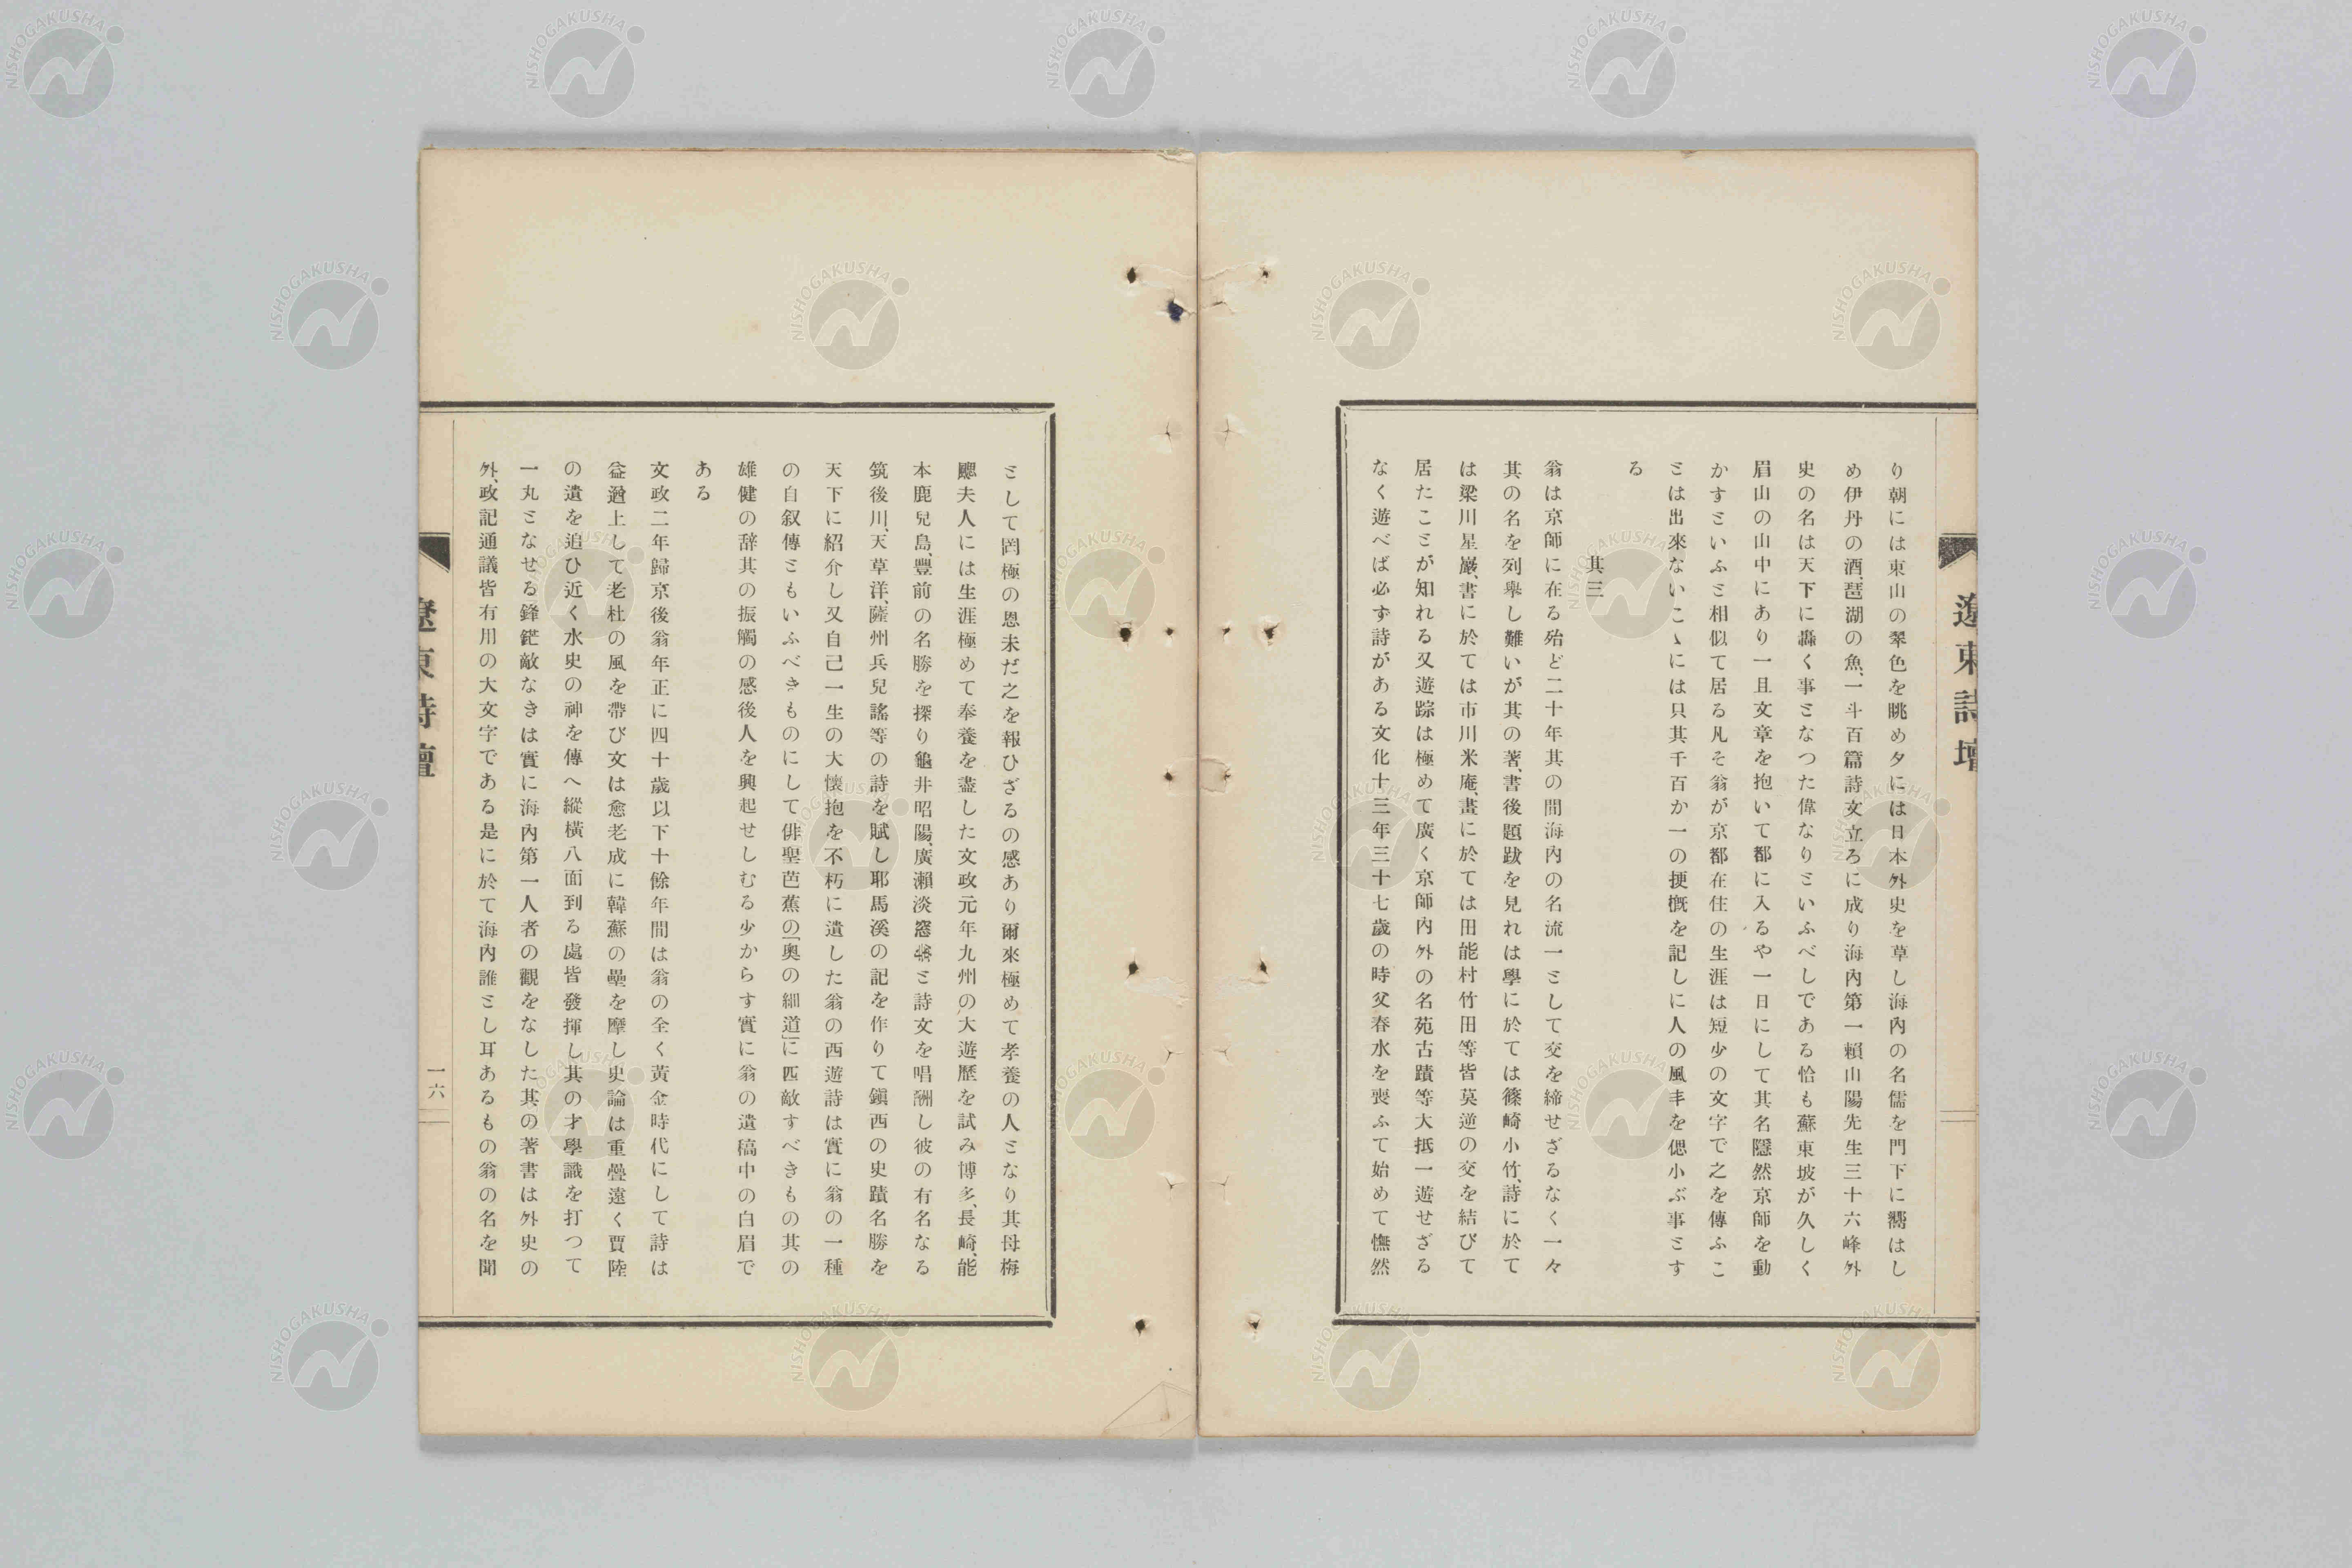 遼東詩壇
り朝には東山の翠色を眺め夕には日本外史を草し海內の名儒を門下に嚮はし
め伊丹の酒、琶湖の魚、一斗百篇詩文立ろに成り海內第一賴山陽先生三十六峰外
史の名は天下に轟く事となつた偉なりといふべしである恰も蘇東坡が久しく
眉山の山中にあり一且文章を抱いて都に入るや一日にして其名隱然京師を動
かすといふと相似て居る凡そ翁が京都在住の生涯は短少の文字で之を傳ふこ
とは出來ないこゝには只其千百か一の挭槪を記しに人の風丰を偲小ぶ事とす
る
其三
翁は京師に在る殆ど二十年其の間海內の名流一として交を締せざるなく一々
其の名を列擧し難いが其の著、書後題跋を見れは學に於ては篠崎小竹、詩に於て
は梁川星巖、書に於ては市川米庵、畫に於ては田能村竹田等皆莫逆の交を結びて
居たことが知れる又遊踪は極めて廣く京師內外の名苑古蹟等大抵一遊せざる
なく遊べば必ず詩がある文化十三年三十七歲の時父春水を喪ふて始めて憮然
として罔極の恩未だ之を報ひざるの感あり爾來極めて孝養の人となり其母梅
颸夫人には生涯極めて奉養を盡した文政元年九州の大遊歷を試み博多、長崎、能
本鹿兒島、豐前の名勝を探り龜井昭陽、廣瀨淡窓等と詩文を唱酬し彼の有名なる
筑後川、天草洋、薩州兵兒謠等の詩を賦し耶馬溪の記を作りて鎭西の史蹟名勝を
天下に紹介し又自己一生の大懷抱を不朽に遺した翁の西遊詩は實に翁の一種
の自叙傳ともいふべきものにして俳聖芭蕉の「奧の細道」に匹敵すべきものの其の
雄健の辞其の振觸の感後人を興起せしむる少からす實に翁の遺稿中の白眉で
ある
文政二年歸京後翁年正に四十歲以下十餘年間は翁の全く黃金時代にして詩は
益遒上して老杜の風を帶び文は愈老成に韓蘇の壘を摩し史論は重疊遠く賈陸
の遺を追ひ近く水史の神を傳へ縱橫八面到る處皆發揮し其の才學識を打つて
一丸となせる鋒鋩敵なきは實に海內第一人者の觀をなした其の著書は外史の
外、政記通議皆有用の大文字である是に於て海內誰とし耳あるもの翁の名を聞
遼東詩壇
一六
NISHOGAKUSHA